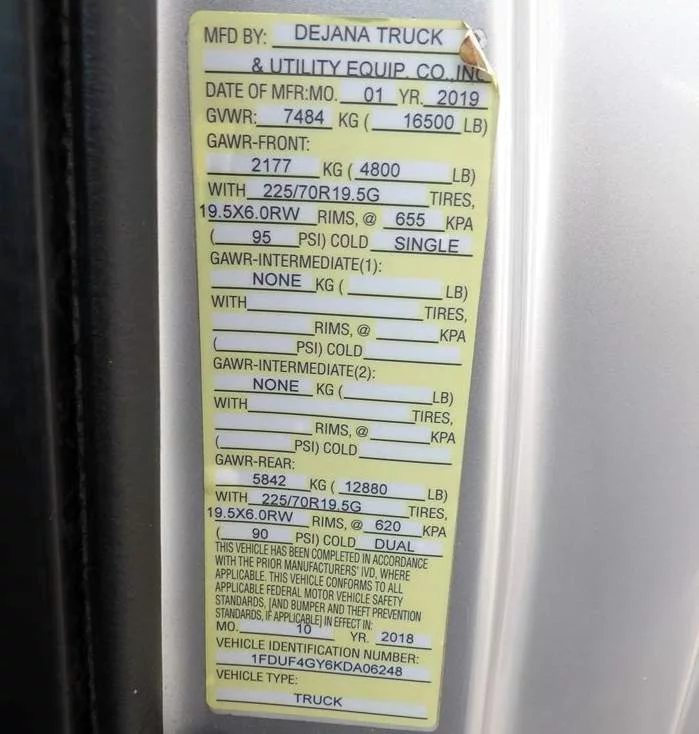 MFD BY: DEJANA TRUCK
& UTILITY EQUIP. CO.,INC
DATE OF MFR:MO. 01 YR. 2019
GVWR: 7484 KG ( 16500 LB)
GAWR-FRONT:
2177 KG ( 4800 LB)
WITH 225/70R19.5G TIRES,
19.5X6.0RW RIMS, @ 655 KPA
( 95 PSI) COLD SINGLE
GAWR-INTERMEDIATE(1):
NONE KG ( LB)
WITH TIRES,
RIMS, @ KPA
( PSI) COLD
GAWR-INTERMEDIATE(2):
NONE KG ( LB)
WITH TIRES,
RIMS, @ KPA
( PSI) COLD
GAWR-REAR:
5842 KG ( 12880 LB)
WITH 225/70R19.5G TIRES,
19.5X6.0RW RIMS, @ 620 KPA
( 90 PSI) COLD DUAL
THIS VEHICLE HAS BEEN COMPLETED IN ACCORDANCE
WITH THE PRIOR MANUFACTURERS' IVD, WHERE
APPLICABLE. THIS VEHICLE CONFORMS TO ALL
APPLICABLE FEDERAL MOTOR VEHICLE SAFETY
STANDARDS, [AND BUMPER AND THEFT PREVENTION
STANDARDS, IF APPLICABLE] IN EFFECT IN:
MO. 10 YR. 2018
VEHICLE IDENTIFICATION NUMBER:
1FDUF4GY6KDA06248
VEHICLE TYPE:
TRUCK